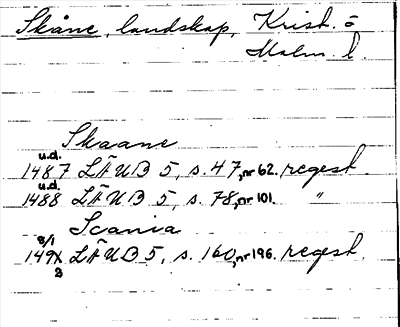 Skåne, landskap, Krist. o
Malm. l.
Skaane
u.d.
1487 LÄUB 5, s. 47, nr 62. regest.
u.d.
1488 LÄUB 5, s. 78, nr 101. "
Scania
8/1
149X LÄUB 5, s. 160, nr 196. regest.
3